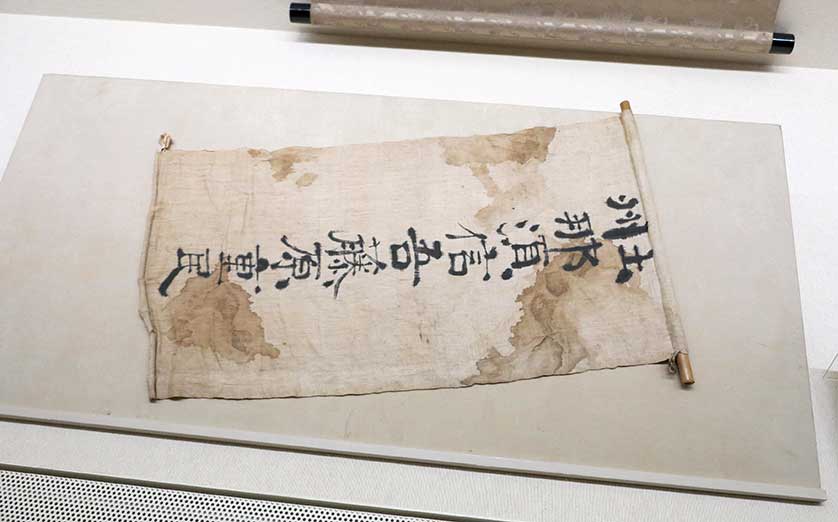 土州
那須信吾藤原重民